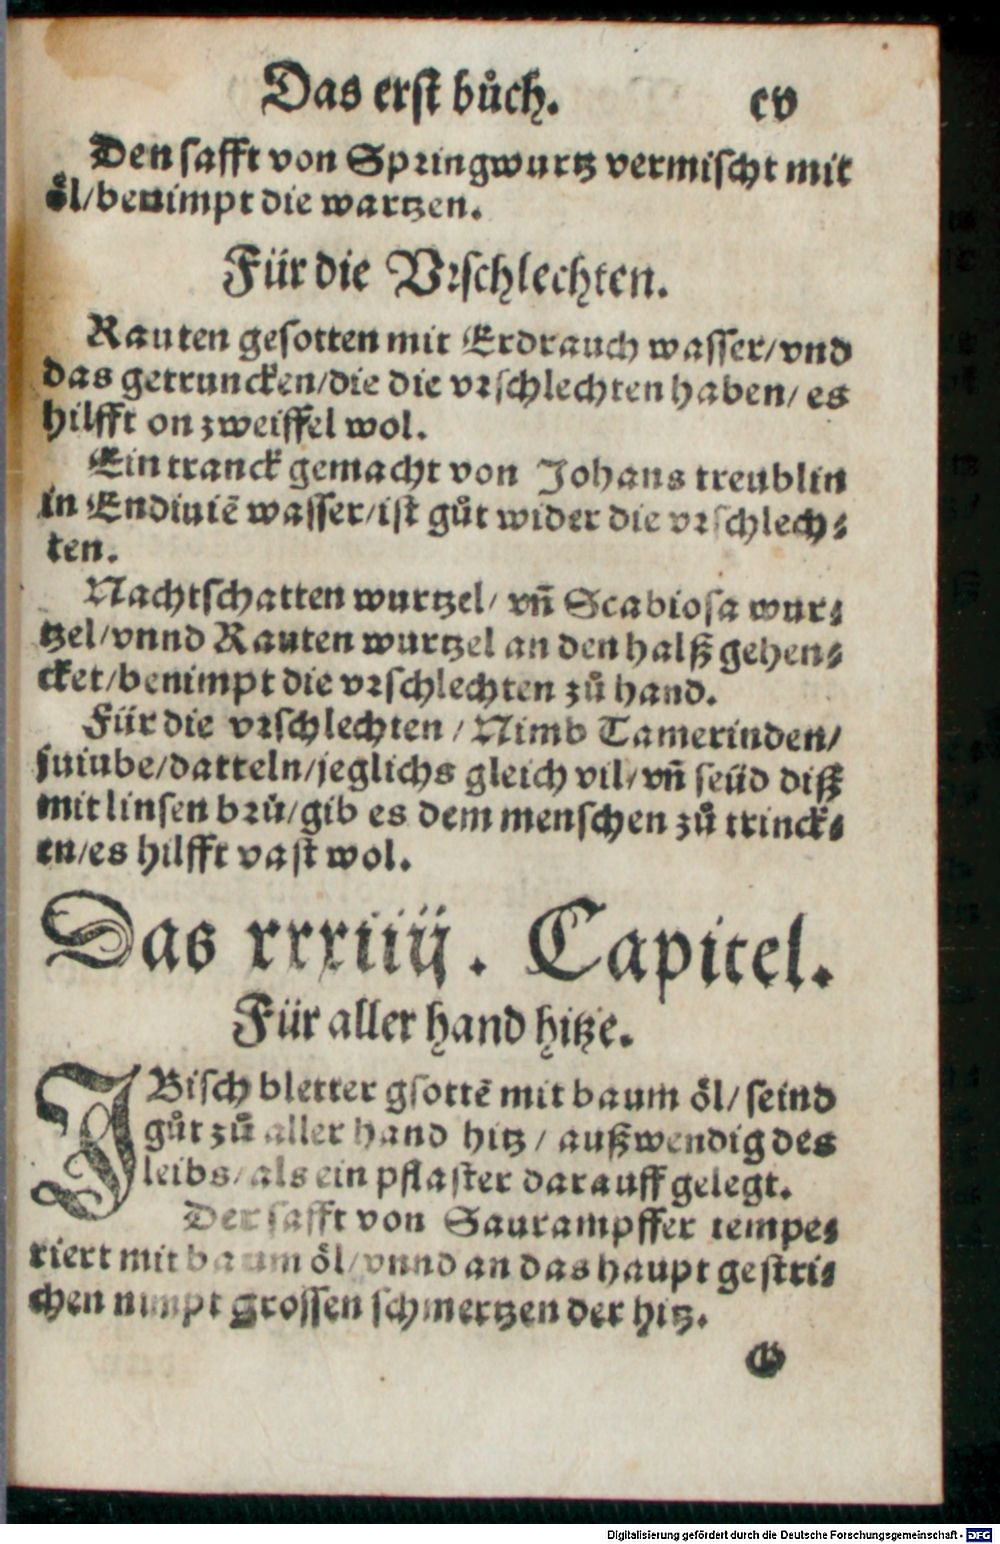 Das erst bůch. cv
Den safft von Springwurtz vermischt mit
öl/benimpt die wartzen.
Für die Vrschlechten.
Rauten gesotten mit Erdrauch wasser/vnd
das getruncken/die die vrschlechten haben/ es
hilfft on zweiffel wol.
Ein tranck gemacht von Johans treublin
in Endiuiẽ wasser/ist gůt wider die vrschlech⸗
ten.
Nachtschatten wurtzel/ vñ Scabiosa wur⸗
tzel/vnnd Rauten wurtzel an den halß gehen⸗
cket/benimpt die vrschlechten zů hand.
Für die vrschlechten/Nimb Tamerinden/
iuiube/datteln/jeglichs gleich vil/vñ seüd diß
mit linsen brů/gib es dem menschen zů trinck⸗
en/es hilfft vast wol.
Das xxxiiij. Capitel.
Für aller hand hitze.
IBisch bletter gsottẽ mit baum öl/ seind
gůt zů aller hand hitz/ außwendig des
leibs/als ein pflaster darauff gelegt.
Der safft von Saurampffer tempe⸗
riert mit baum öl/vnnd an das haupt gestri⸗
chen nimpt grossen schmertzen der hitz.
G
Digitalisierung gefördert durch die Deutsche Forschungsgemeinschaft - DFG